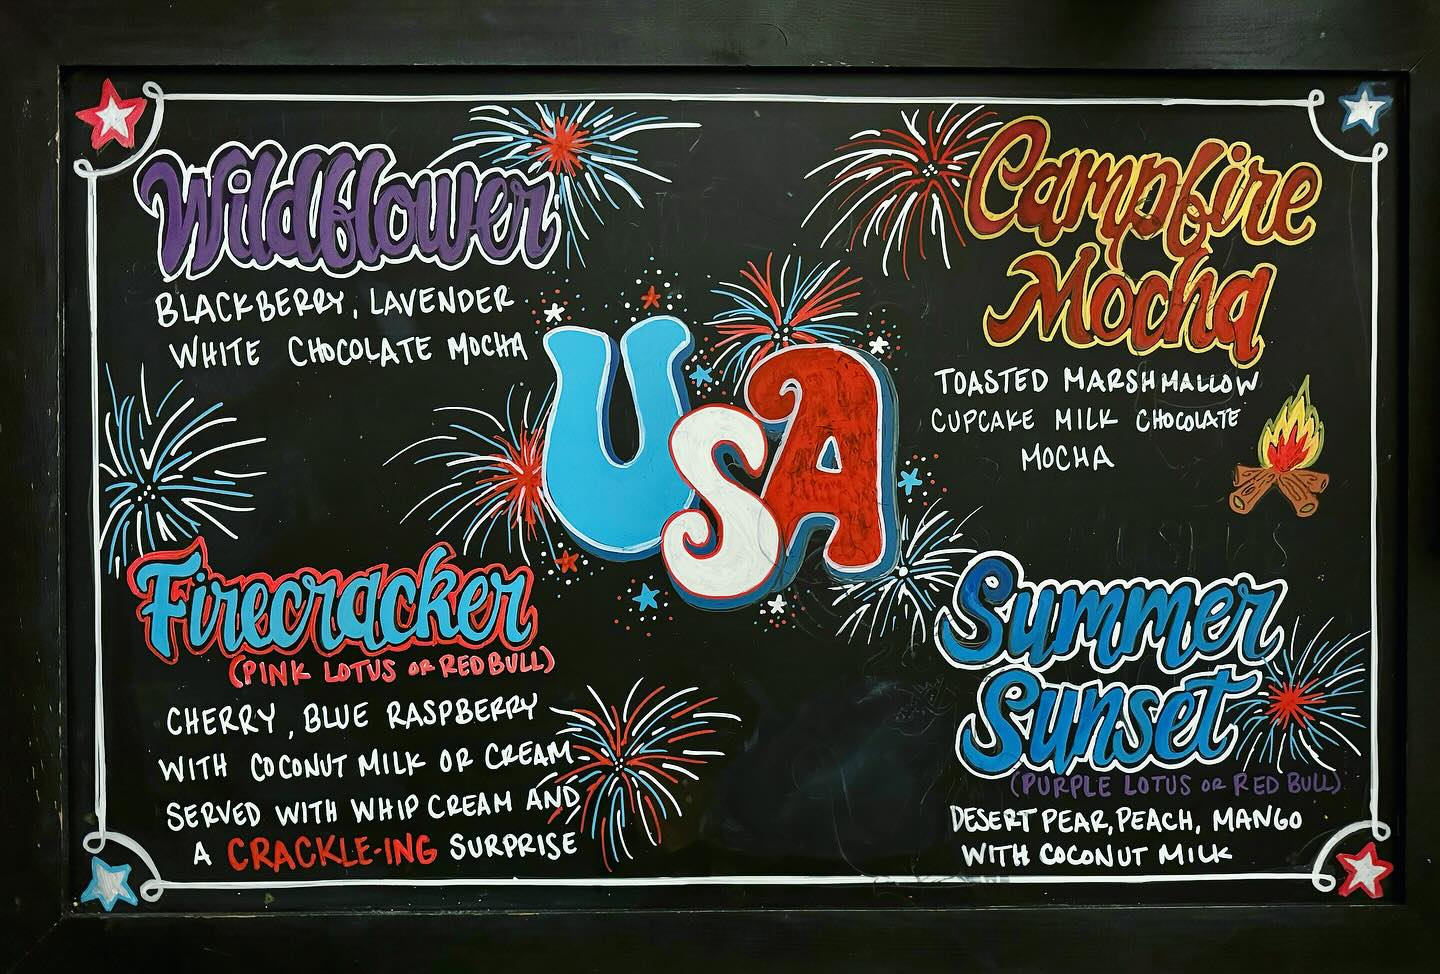 Wildflower
BLACKBERRY, LAVENDER
WHITE CHOCOLATE MOCHA
Campfire
Mocha
TOASTED MARSHMALLOW
CUPCAKE MILK CHOCOLATE
MOCHA
USA
Firecracker
(PINK LOTUS OR RED BULL)
CHERRY, BLUE RASPBERRY
WITH COCONUT MILK OR CREAM
SERVED WITH WHIP CREAM AND
A CRACKLE-ING SURPRISE
Summer
Sunset
(PURPLE LOTUS OR RED BULL)
DESERT PEAR, PEACH, MANGO
WITH COCONUT MILK